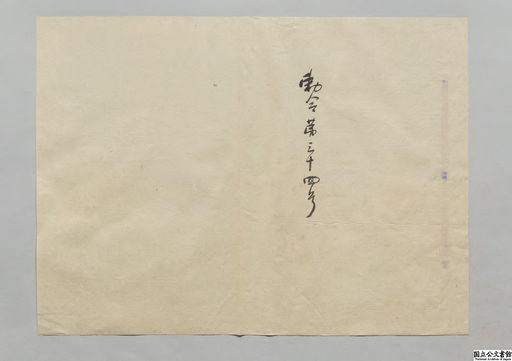 勅令第三十四号
国立公文書館
National Archives of Japan